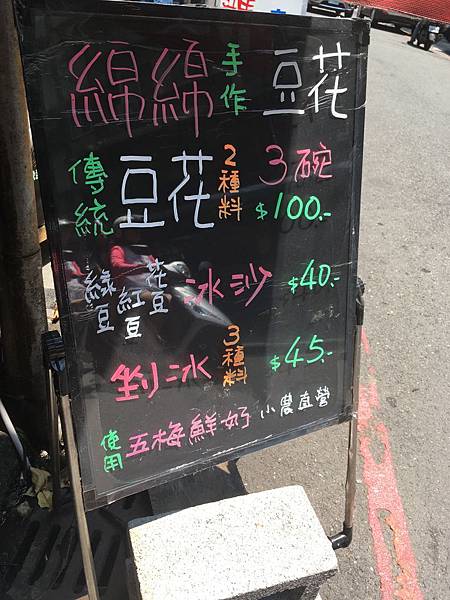 綿綿手作豆花
傳統豆花2種料3碗$100.-
綠豆紅豆花豆冰沙$40.-
剉冰3種料$45.-
使用五梅鮮好小農直營